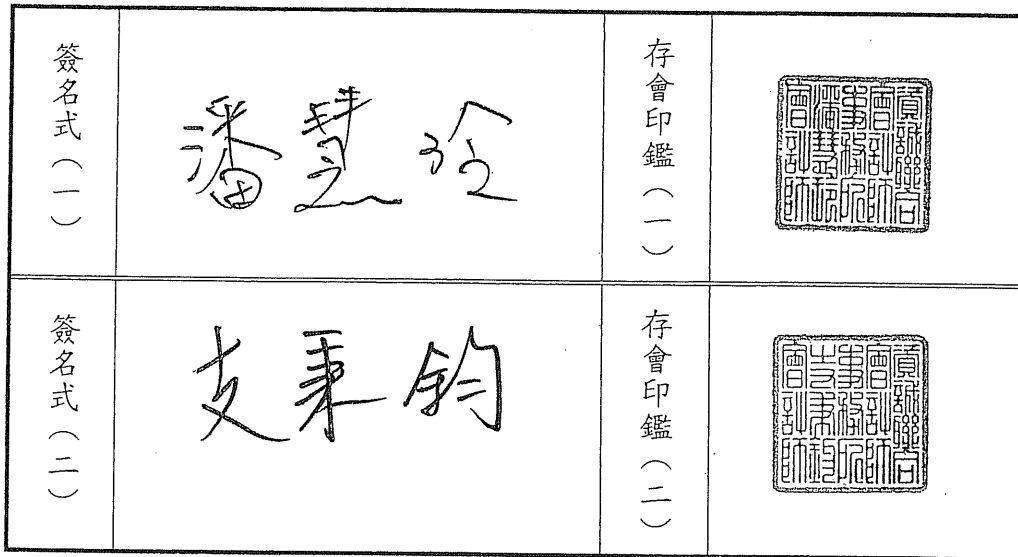 簽名式（一）
潘慧玲
存會印鑑（一）
資誠聯合
會計師
事務所
潘慧玲
會計師
簽名式（二）
支秉鈞
存會印鑑（二）
資誠聯合
會計師
事務所
支秉鈞
會計師